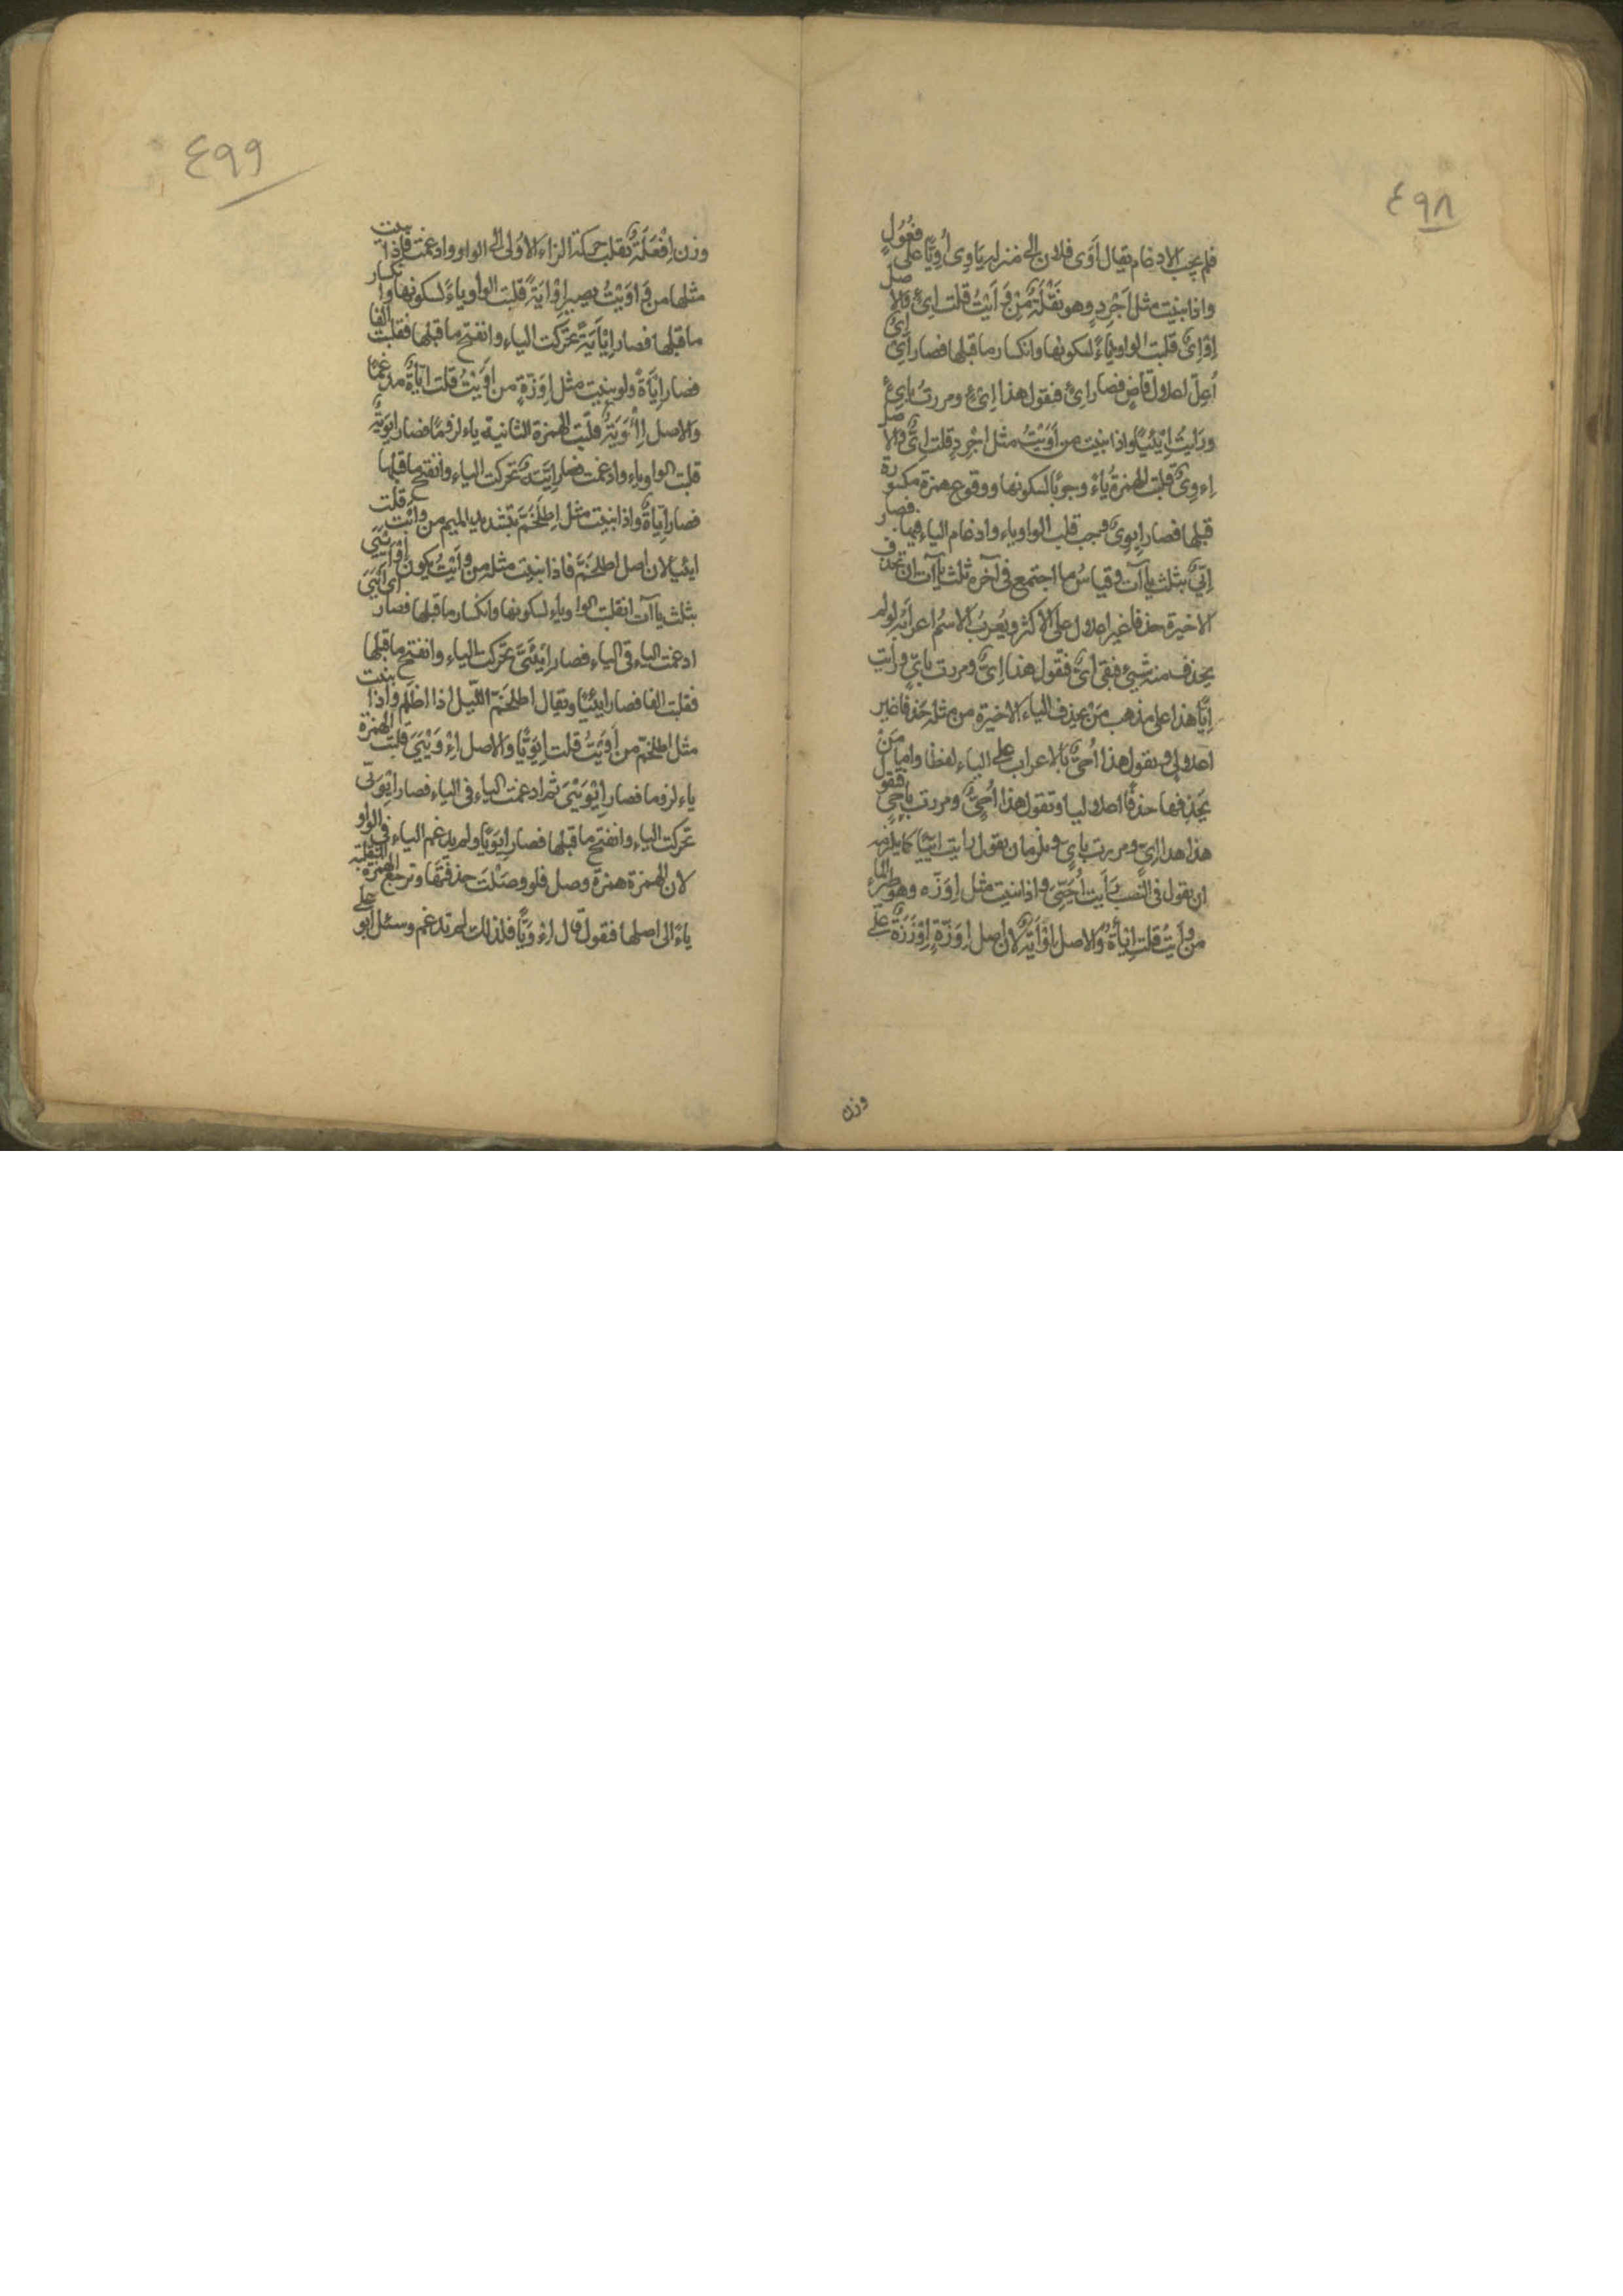 ٤٩٨
فلم يجب الادغام يقال أَوَى فلان الى منزله يَاوِى أُوِيًّا على فُعُولٍ
واذا بنيت مثل اَجْرِدٍ وهو نَقْلَةٌ مِنْ وَاَيْتُ قلت اِىْءٍ والاصل
اِوْاِىٌ قلبت الواو ياءً لسكونها وانكسار ما قبلها فصار اِىْاِىٌ
اُعِلّ اعلال قاضٍ فصار اِىْءٍ فيقول هذا اِىْءٍ ومررت بِاِىْءٍ
ورَايتُ اِيْئِيًا واذا بنيت من اَوَيْتُ مثل اِجْرِدٍ قلت اِىٌّ والاصل
اِءْوِىٌ قلبت الهمزةُ ياءً وجوبًا لسكونها ووقوع همزة مكسورة
قبلها فصار اِيوِىٌ فيجب قلب الواو ياء وادغام الياء فيها فصار
اِيِّىٌ بثلث ياآت وقياسُ ما اجتمع فى آخره ثلث ياآت ان تحذف
الاخيرة حذفا غير اعلال على الاكثر ويُعرَبُ الاسْمُ اعرابَه لو لم
يحذف منه شيئ فبقى اِىٌّ فتقول هذا اِىٌّ ومررت بِاِىٍّ ورايت
اِيًّا هذا على مذهب مَنْ يحذف الياء الاخيرة من مثله حَذفا غير
اعلالى ويقول هذا اُحىٌّ بالاعراب على الياء لفظا واما مَنْ
يَحذِفها حذفًا اعلاليا وتقول هذا اُحىٍّ ومررت باُحىٍّ فيقول
هذا اِىٍّ ومررت باِىٍّ ويلزمه ان يقول رايت اِيِّيًا كما يلزمه
ان يقول فى النّصب رَاَيت اُحَيِّىَ واذا بنيت مثل اِوَزّه وهو طيرالماء
من وَاَيتُ قلت اِيْاَةٌ والاصل اِوْاَيَةٌ لان اصل اِوَزّةٍ اِوْزَزَةٌ على
وزن
٤٩٩
وزن اِفْعَلَةٌ نقلت حركة الزاء الاولى الى الواو وادغمت فاذا بنيت
مثلها من وَاَيْتُ يصير اِوْاَيَةً قلبت الواو ياءً لسكونها وانكسار
ما قبلها فصار اِيْاَيَةً تحركت الياء وانفتح ما قبلها فقلبت الفا
فصار اِيْاَةً ولو بنيت مثل اِوَزّةٍ من اَوَيْتُ قلت اِيّاةٌ مدغما
والاصل اِاْوَيَةٌ قلبت الهمزة الثانية ياء لزوما فصار اِيوَيَةٌ
قلبت الواو ياء وادغمت فصار اِيَّيَةٌ تحركت الياء وانفتح ما قبلها
فصار اِيّاةٌ واذا بنيت مثل اِطلَخَمّ بتشديد الميم من وَاَيْت قلت
ايئيا لان اصل اطلخمّ اطلخْمَمَ فاذا بنيت مثله من وَاَيْتُ يكون اِوْاَيْيَىَ
بثلث ياآت انقلبت الواو ياء لسكونها وانكسار ما قبلها فصار اِىْاَيْيَىَ
ادغمت الياء فى الياء فصار اِيْئَىَّ تحركت الياء وانفتح ما قبلها
فقلبت الفا فصار ايئيّا ويقال اطلخمّ اللّيل اذا اظلم واذا بنيت
مثل اطلخمّ من اَوَيْتُ قلت اِيوَيّا والاصل اِءْوَيْيَىَ قلبت الهمزة
ياء لزوما فصار اِيْوَيْيَىَ ثم ادغمت الياء فى الياء فصار اِيْوَيَّى
تحركت الياء وانفتح ما قبلها فصار اِيوَيّا ولم يدغم الياء فى الواو
لان الهمزة همزة وصل فلو وصَلْتَ حذفتَها وترجع الهمزة المنقلبة
ياءً الى اصلها فتقول قال اءْوَيّا فلذلك لم يدغم وسئل ابو على